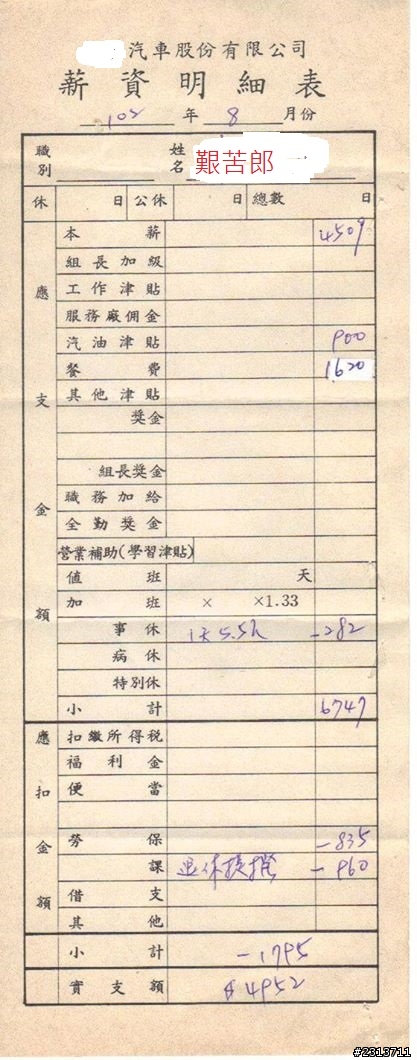 汽車股份有限公司
薪資明細表
105 年 8 月份
職別 姓名 艱苦郎
休 日 公休 日 總數 日
應支金額
本薪 4509
組長加級
工作津貼
服務廠佣金
汽油津貼 900
餐費 1620
其他津貼
獎金
組長獎金
職務加給
全勤獎金
營業補助(學習津貼)
值班 天
加班 × ×1.33
事休 1天5.5h -282
病休
特別休
小計 6747
應扣金額
扣繳所得稅
福利金
便當
勞保 -835
課 退休提撥 -960
借支
其他
小計 -1795
實支額 $4952
#2313711